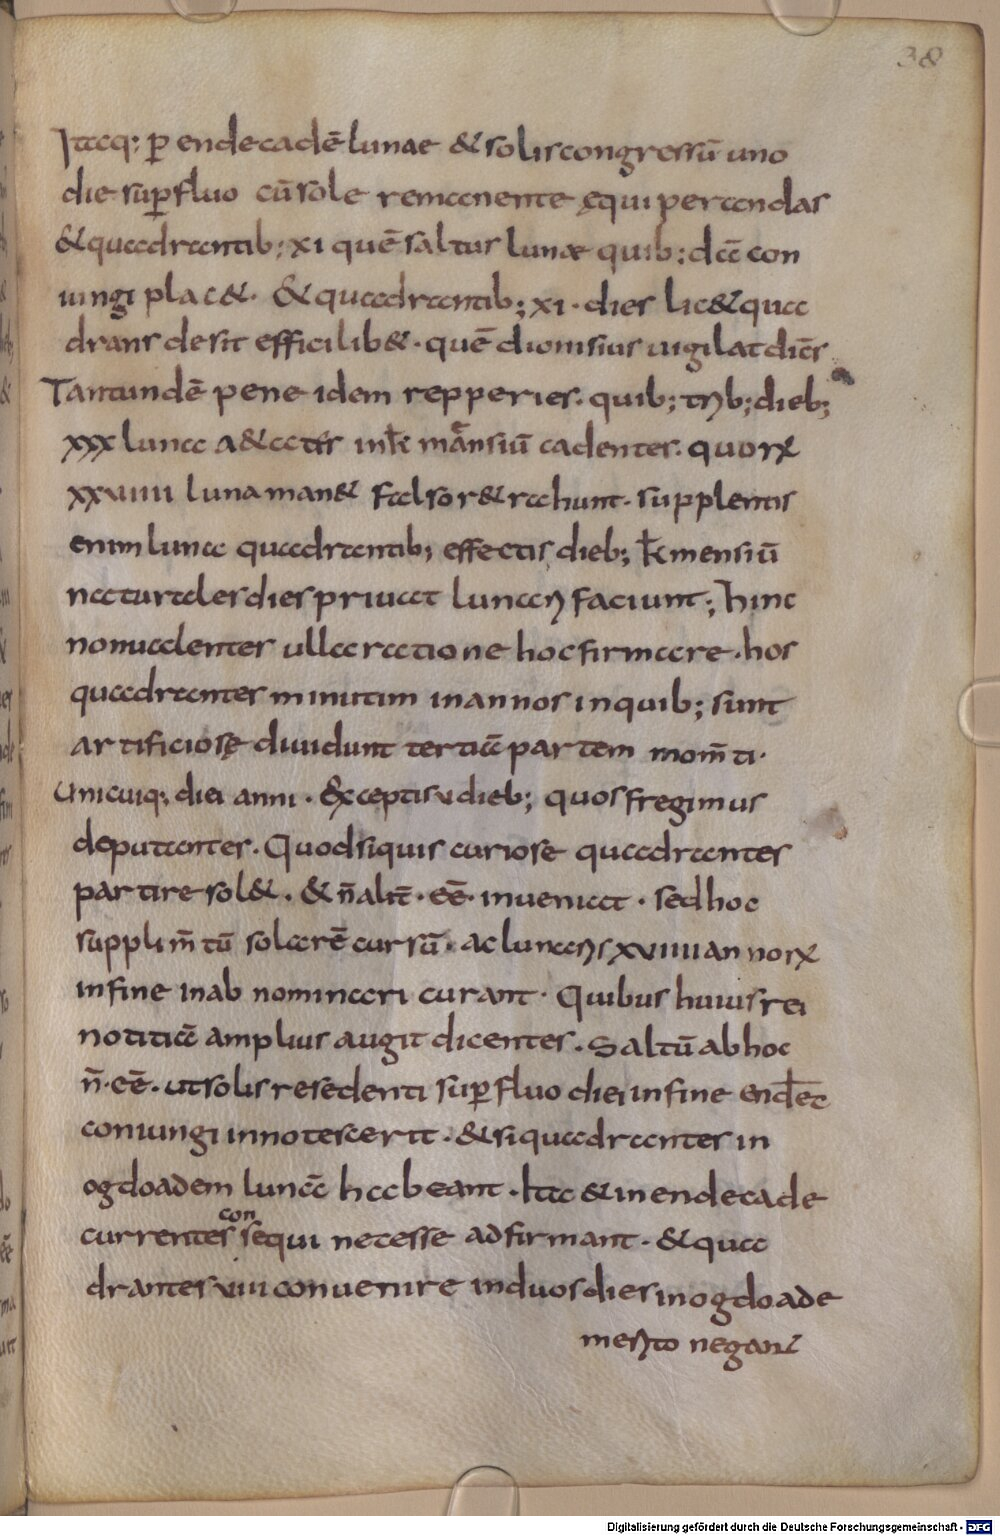 38
Itaq; ꝑ endecadē lunae & solis congressū uno
die suꝑfluo cū sole remanente ęqui perandas
& quadrantib; xi quē saltus lunæ quib; dā con
iungi plac&. & quadrantib; xi · dies lic& qua
drans desit effici lib&. quē dionisius uigilat diēs
Tantundē pene idem repperies. quib; trib; dieb;
xxx luna a&atis inkł mansiū cadentes. quorꝝ
xxuiiii luna man& falso r& rahunt. supplentis
enim lunae quadrantib; effectis dieb; kł mensiū
naturales dies priuat lunaris faciunt; hinc
non ualentes ulla ratione hoc firmare. hos
quadrantes minutim in annos in quib; sunt
artificiosę diuidunt tertiā partem mom̄ti.
Unicuiq; diei anni. Exceptis v dieb; quos fregimus
deputantes. Quod siquis curiose quadrantes
partire sol&. & n̄ alit̄. eē. inueniat. sed hoc
supplim̄tū solarē cursū. ac lunaris xviiii annorꝝ
in fine inab nominari curant. Quibus huius rei
notitiā amplius augit dicentes. Saltū ab hoc
n̄. eē. ut solis resedenti suꝑfluo diei in fine endec̄
coniungi innotescerit. & si quadrantes in
ogdoadem lunā habeant. Ita & in endecade
currentes consequi necesse adfirmant. & qua
drantes viii conuenire in duos dies in ogdoade
merito negant
Digitalisierung gefördert durch die Deutsche Forschungsgemeinschaft - DFG